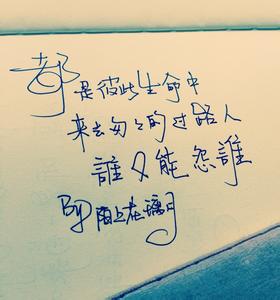 都是彼此生命中
来去匆匆的过路人
誰又能怨誰
By 陌上在璃月